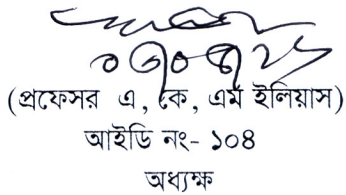 (প্রফেসর এ, কে, এম ইলিয়াস)
আইডি নং- ১০৪
অধ্যক্ষ